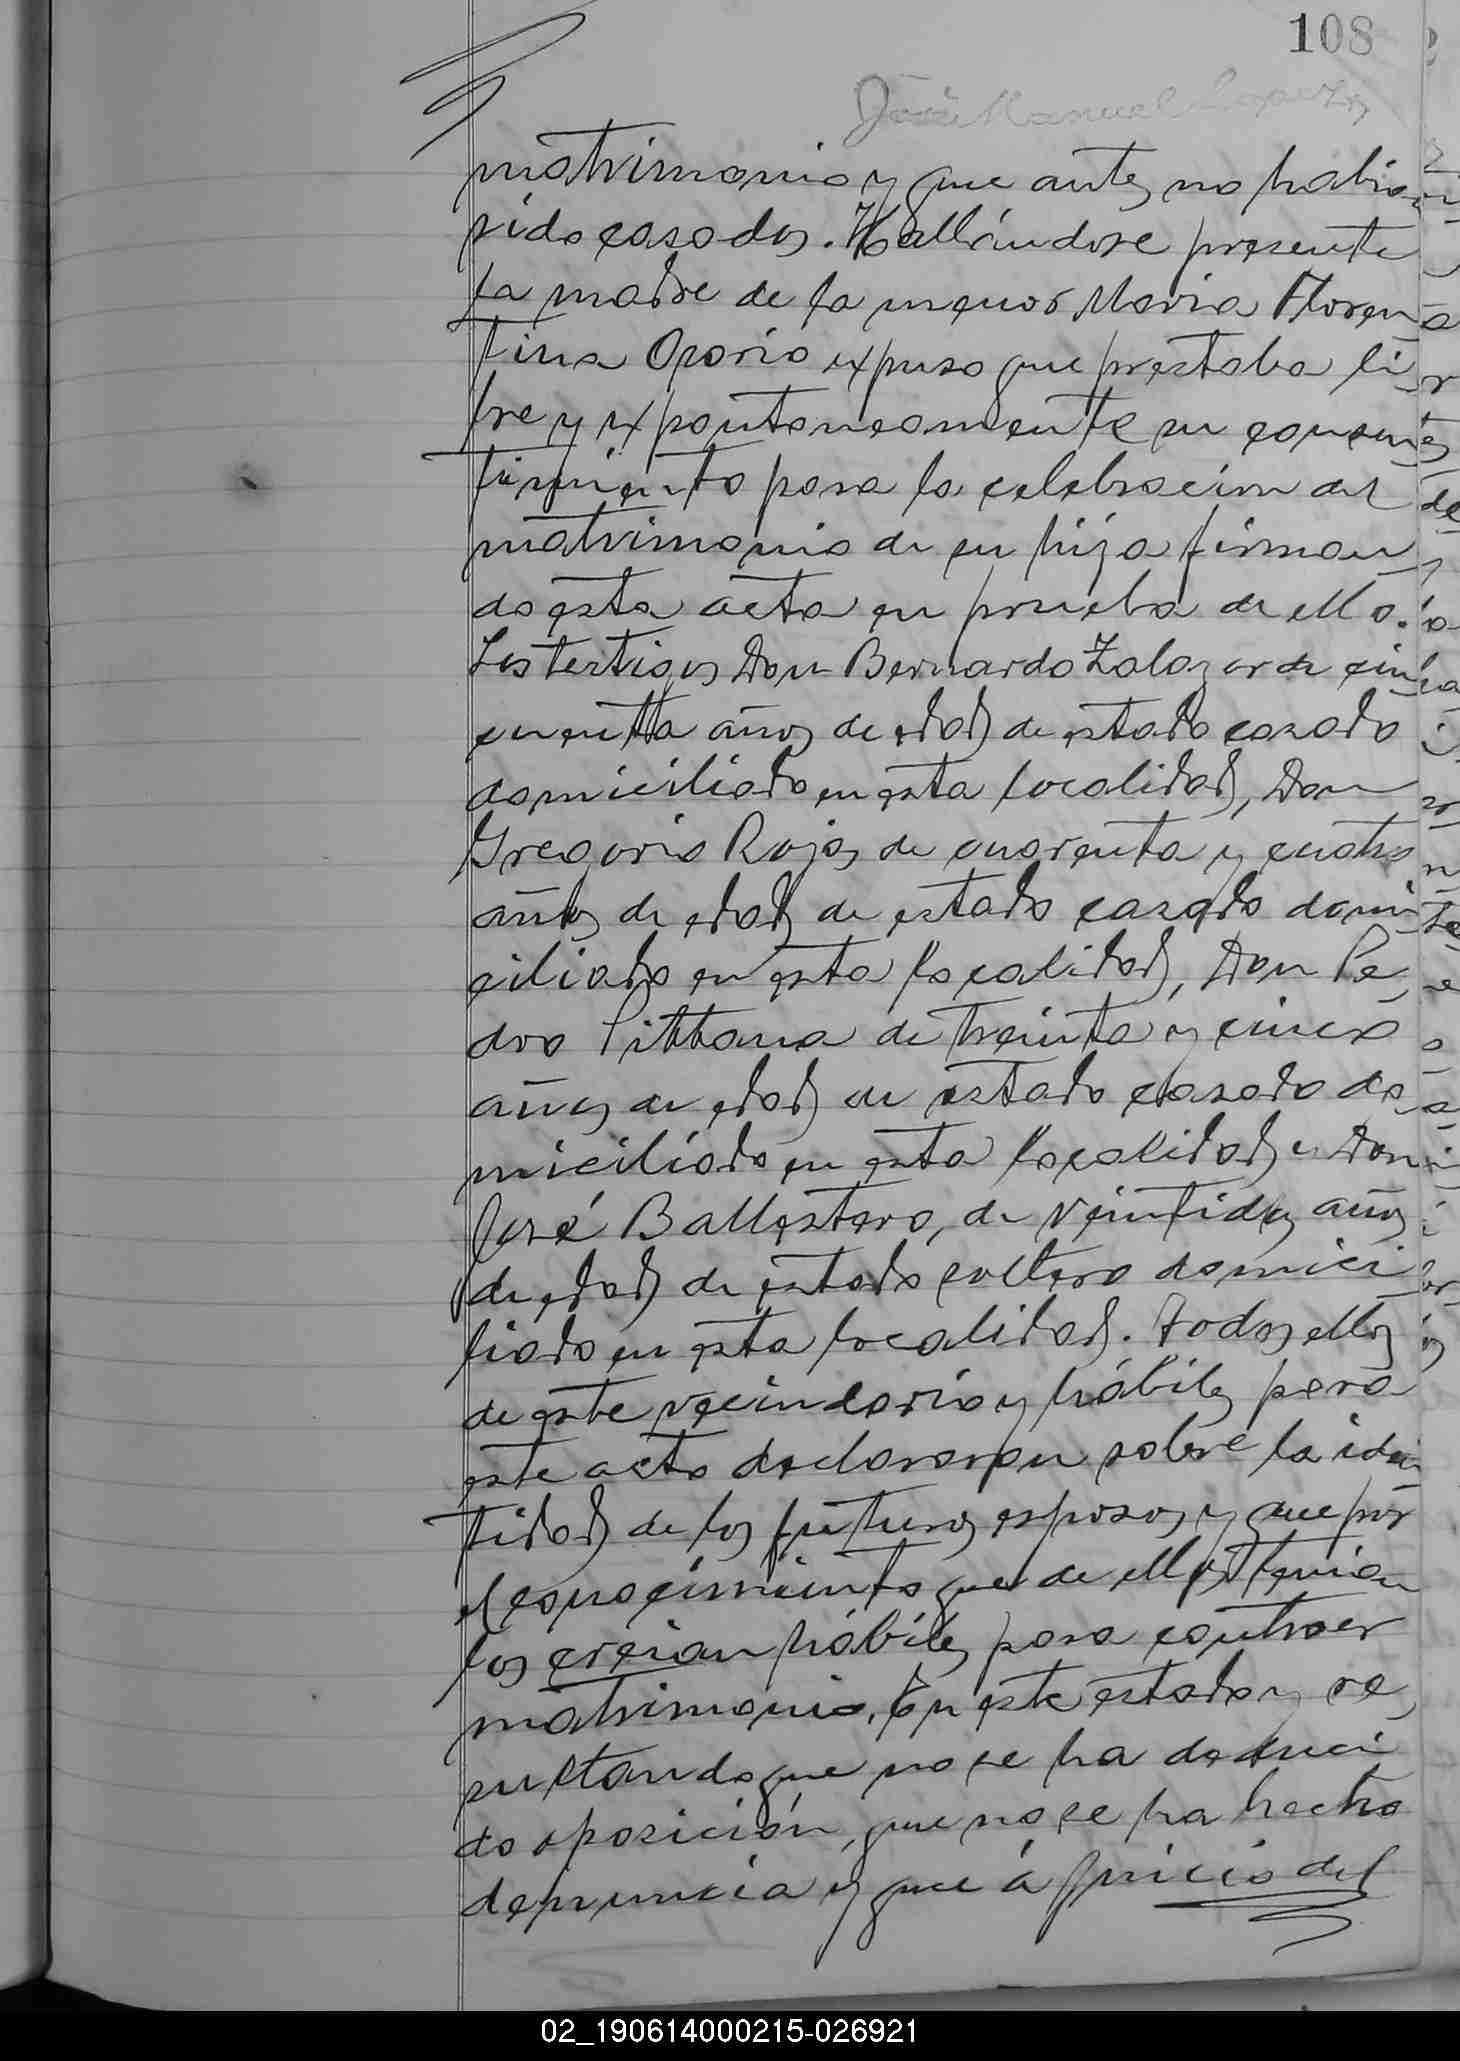 108
José Manuel Lopez
matrimonio y que antes no habian
sido casados. Hallándose presente
la madre de la menor Maria Floren
tina Osorio expuso que prestaba li
bre y expontaneamente su consen
timiento para la celebracion del
matrimonio de su hija firman
do esta acta en prueba de ello.
Los testigos Don Bernardo Zalazar de cin
cuenta años de edad de estado casado
domiciliado en esta localidad, Don
Gregorio Rojas de cuarenta y cuatro
años de edad de estado casado domi
ciliado en esta localidad, Don Pe
dro Pittana de treinta y cinco
años de edad de estado casado do
miciliado en esta localidad y Don
José Ballestero, de veintidos años
de edad de estado soltero domici
liado en esta localidad. todos ellos
de este vecindario y hábiles para
este acto declararon sobre la iden
tidad de los futuros esposos y que por
el conocimiento que de ellos tenian
los creian hábiles para contraer
matrimonio. En este estado y re
sultando que no se ha deduci
do oposición, que no se ha hecho
denuncia y que á juicio del
02_190614000215-026921